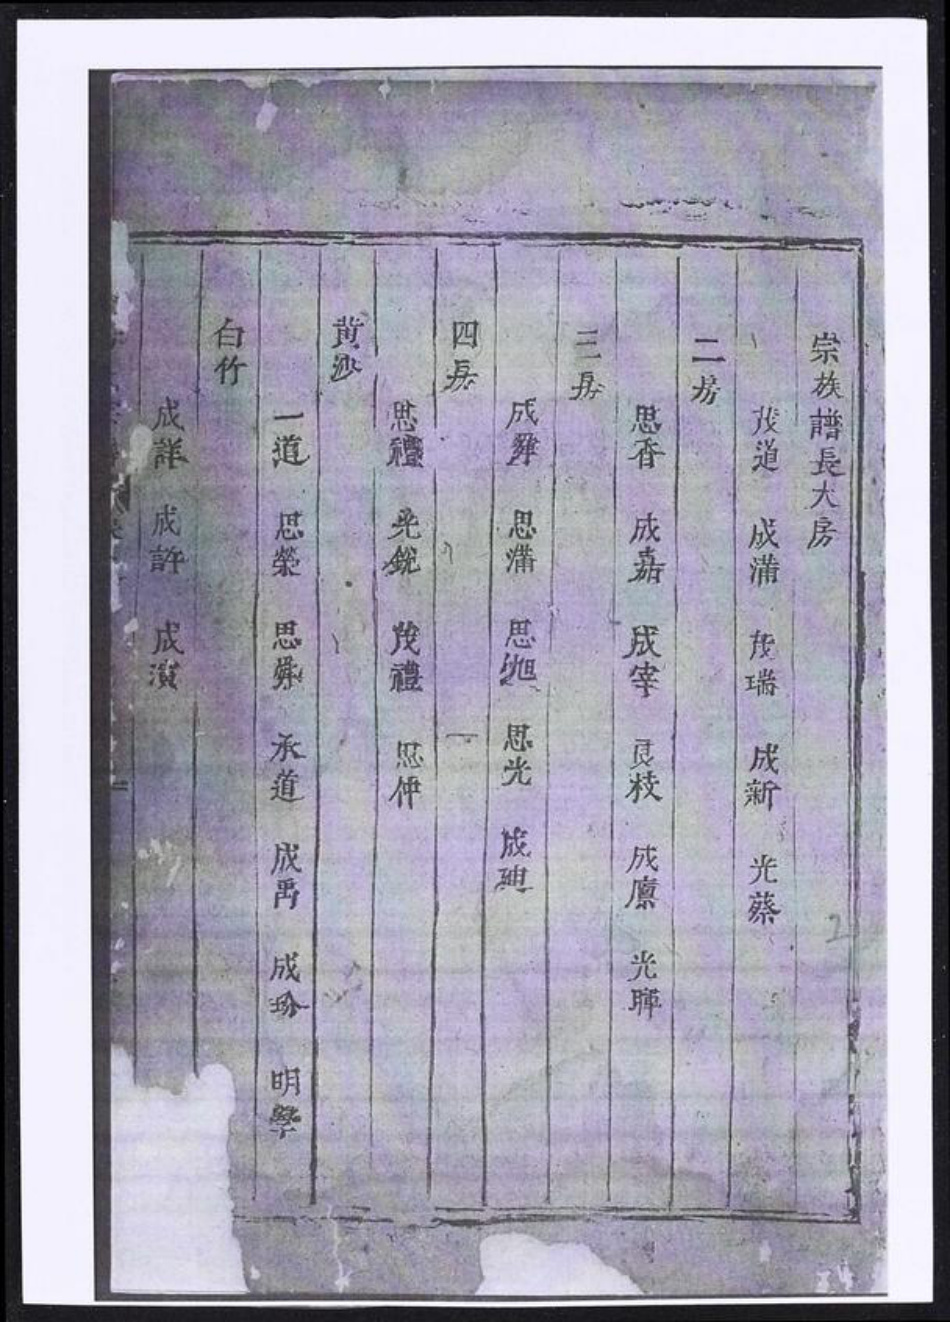 宗族譜長大房
茂道 成滿 茂瑞 成新 光蔡
二房
思香 成嘉 成宰 良枝 成廪 光暉
三房
成舜 思滿 思旭 思光 成
四房
思禮 光銳 茂禮 思仲
黃沙
一道 思榮 思舜 承道 成禹 成珍 明學
白竹
成詳 成許 成濱